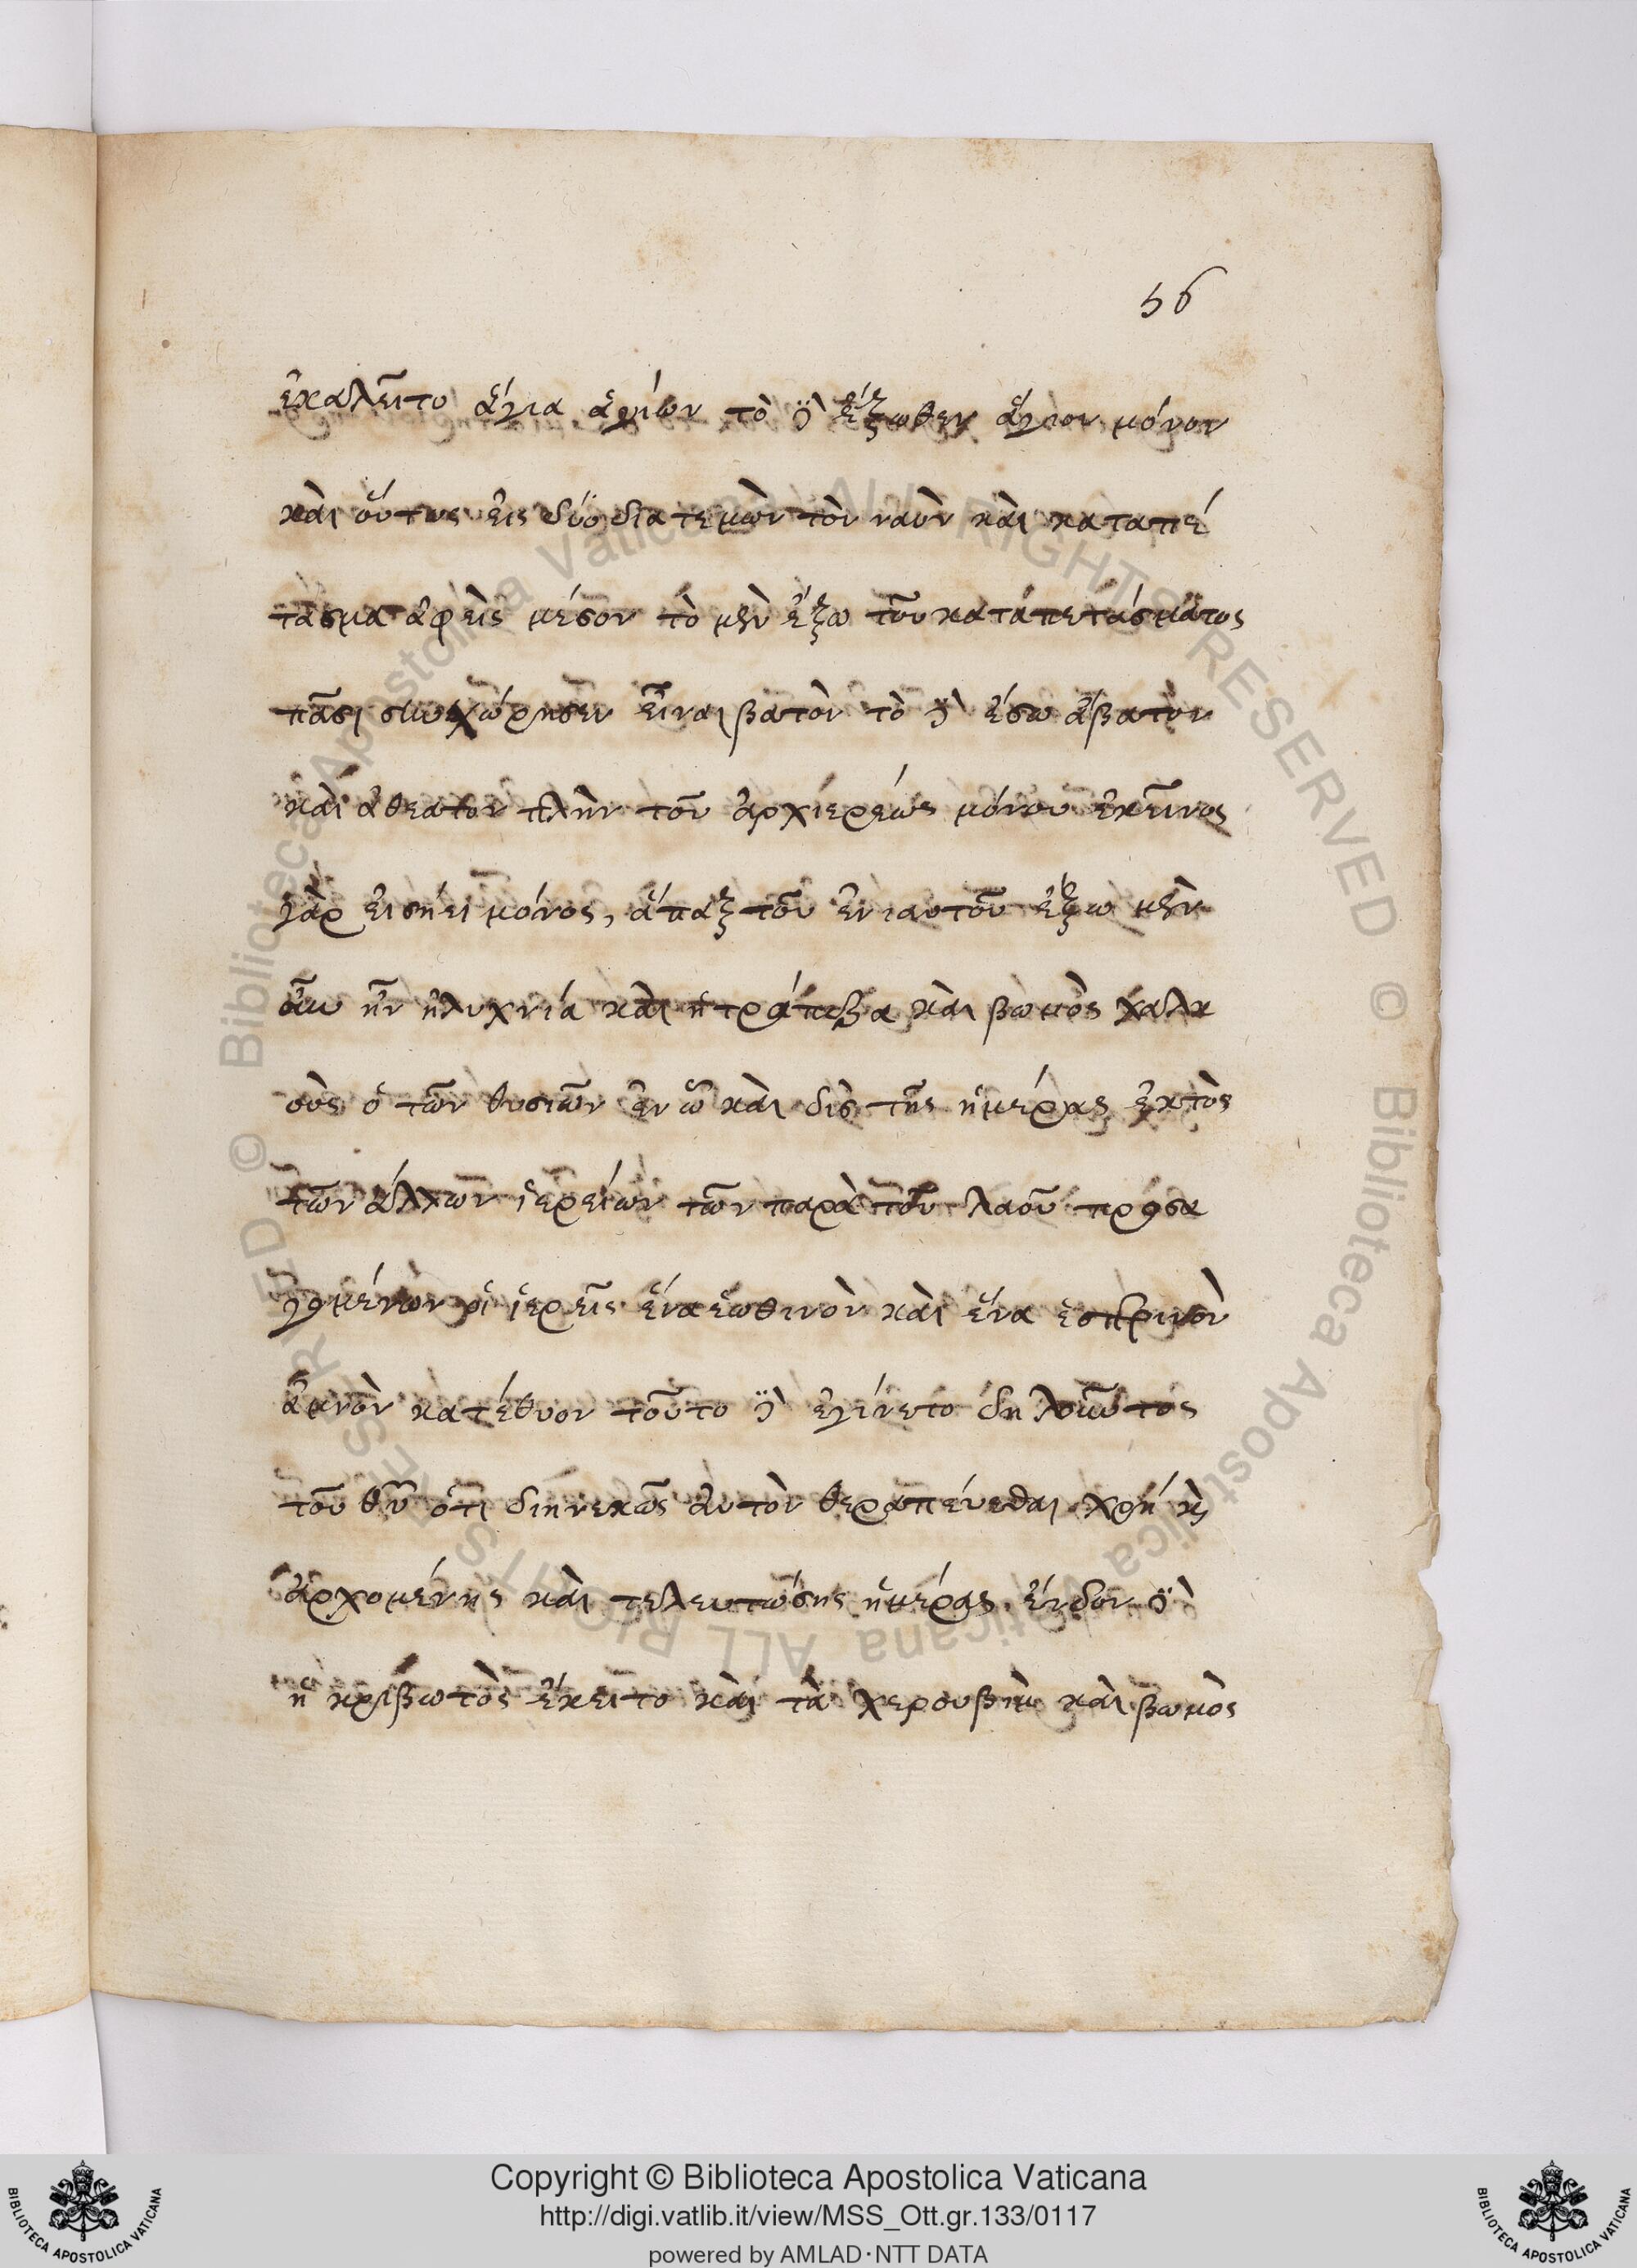 56
ἐκαλεῖτο ἅγια ἁγίων τὸ δὲ ἔξωθεν ἅγιον μόνον
καὶ οὕτως εἰς δύο διατεμὼν τὸν ναὸν καὶ καταπέ
τασμα ἀφεὶς μέσον τὸ μὲν ἔξω τοῦ καταπετάσματος
πᾶσι συνεχώρησεν εἶναι βατὸν τὸ δὲ ἔσω ἄβατον
καὶ ἀθέατον πλὴν τοῦ ἀρχιερέως μόνου ἐκεῖνος
γὰρ εἰσήει μόνος, ἅπαξ τοῦ ἐνιαυτοῦ ἔξω μὲν
οὖν ἦν ἡ λυχνία καὶ ἡ τράπεζα καὶ βωμὸς χαλκ
οὺς ὁ τῶν θυσιῶν ἐν ᾧ καὶ δὶς τῆς ἡμέρας ἐκτὸς
τῶν ἄλλων ἱερείων τῶν παρὰ τοῦ λαοῦ προσα
γομένων οἱ ἱερεῖς ἕνα ἑωθινὸν καὶ ἕνα ἑσπερινὸν
ἀμνὸν κατέθυον τοῦτο δὲ ἐγίνετο δηλοῦντος
τοῦ θῦ ὅτι διηνεκῶς αὐτὸν θεραπεύεσθαι χρή κὶ
ἀρχομένης καὶ τελευτώσης ἡμέρας. ἔνδον δὲ
ἡ κριβωτὸς ἔκειτο καὶ τὰ χερουβὶμ καὶ βωμὸς
Biblioteca Apostolica Vaticana ALL RIGHTS RESERVED ©
Copyright © Biblioteca Apostolica Vaticana
http://digi.vatlib.it/view/MSS_Ott.gr.133/0117
powered by AMLAD·NTT DATA
BIBLIOTECA APOSTOLICA VATICANA
BIBLIOTECA APOSTOLICA VATICANA